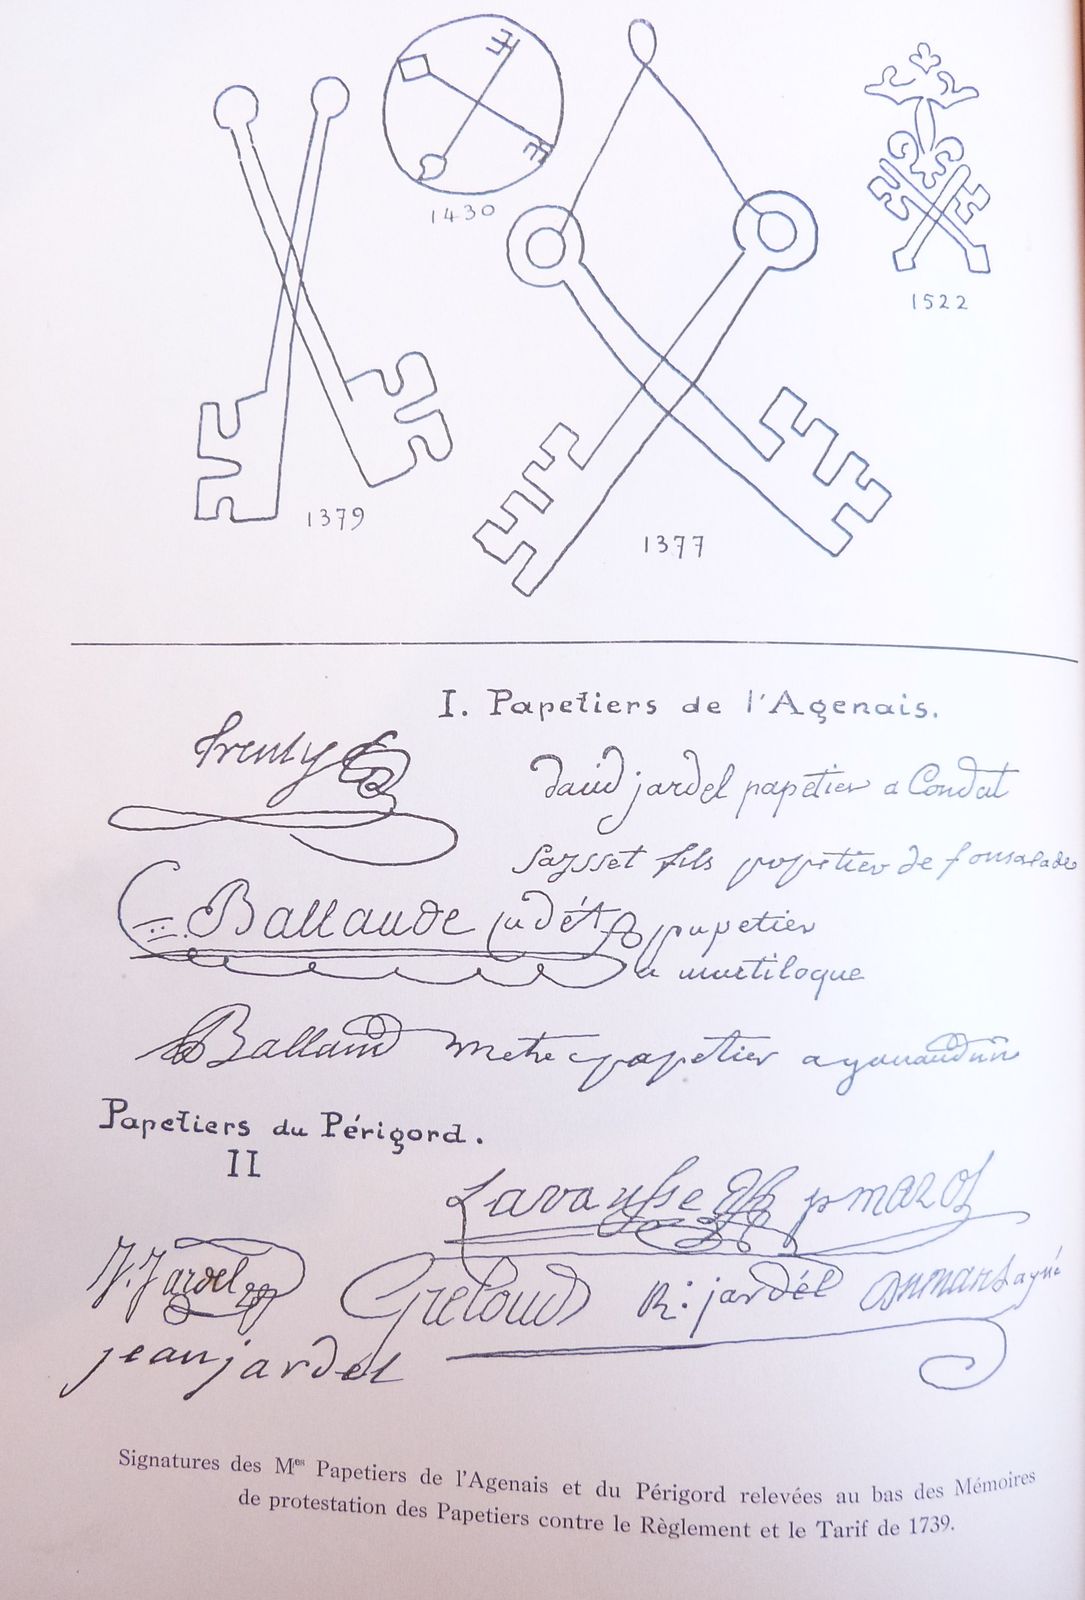 1430
1522
1379
1377
I. Papetiers de l'Agenais.
david jardel papetier a Condat
Saysset fils papetier de fonsalade
Ballande cadét papetier
a martiloque
Balland metre papetier
Papetiers du Périgord.
II
Lavaysse
J. Jardel
Greloud
R: jardél
jean jardel
Signatures des Mes Papetiers de l'Agenais et du Périgord relevées au bas des Mémoires
de protestation des Papetiers contre le Règlement et le Tarif de 1739.